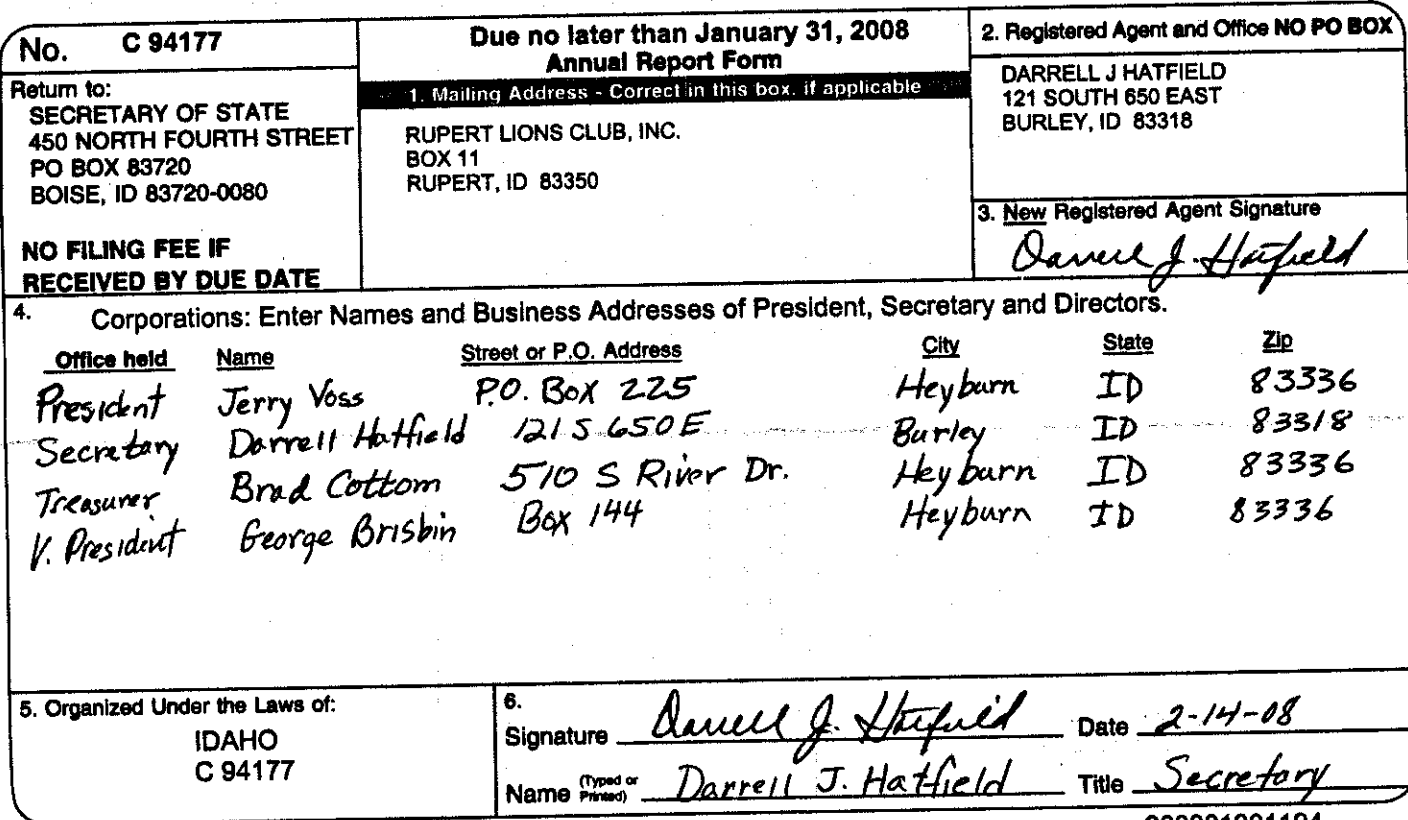 No. C 94177
Return to:
SECRETARY OF STATE
450 NORTH FOURTH STREET
PO BOX 83720
BOISE, ID 83720-0080
NO FILING FEE IF
RECEIVED BY DUE DATE
Due no later than January 31, 2008
Annual Report Form
1. Mailing Address - Correct in this box, if applicable
RUPERT LIONS CLUB, INC.
BOX 11
RUPERT, ID 83350
2. Registered Agent and Office NO PO BOX
DARRELL J HATFIELD
121 SOUTH 650 EAST
BURLEY, ID 83318
3. New Registered Agent Signature
Darrell J. Hatfield
4. Corporations: Enter Names and Business Addresses of President, Secretary and Directors.
Office held Name Street or P.O. Address City State Zip
President Jerry Voss P.O. Box 225 Heyburn ID 83336
Secretary Darrell Hatfield 121 S 650 E Burley ID 83318
Treasurer Brad Cottom 510 S River Dr. Heyburn ID 83336
V. President George Brisbin Box 144 Heyburn ID 83336
5. Organized Under the Laws of:
IDAHO
C 94177
6.
Signature Darrell J. Hatfield Date 2-14-08
Name (Typed or Printed) Darrell J. Hatfield Title Secretary